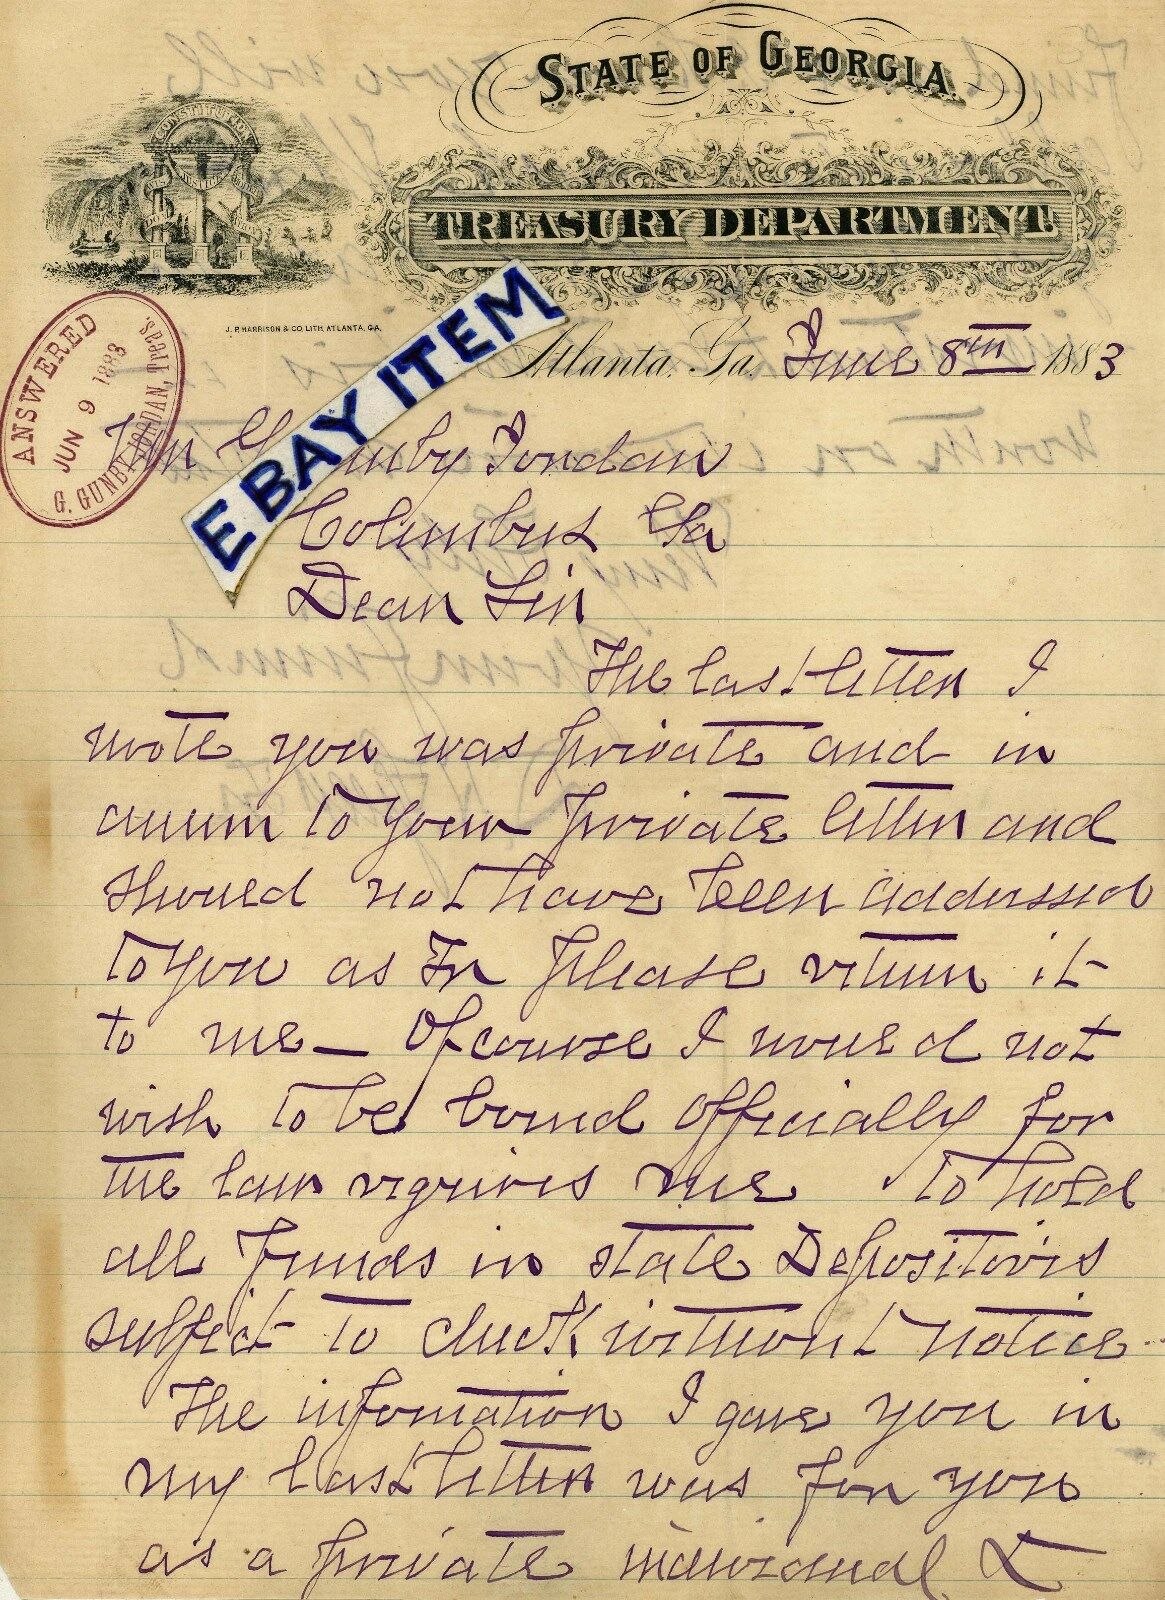 STATE OF GEORGIA.
CONSTITUTION
TREASURY DEPARTMENT.
J. P. HARRISON & CO. LITH. ATLANTA, GA.
Atlanta, Ga. June 8th 1883
ANSWERED
JUN 9 1883
G. GUNBY JORDAN, Treas.
EBAY ITEM
Mr G Gunby Jordan
Columbus Ga
Dear Sir
The last letter I
wrote you was private and in
answer to your private letter and
should not have been addressed
to you as Tr Please return it
to me — Of course I would not
wish to be bound officially for
the law requires me to hold
all funds in state Depositories
subject to check without notice.
The information I gave you in
my last letter was for you
as a private individual &